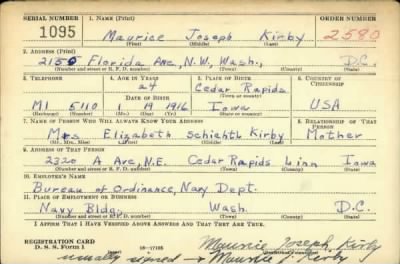 SERIAL NUMBER 1. NAME (Print) ORDER NUMBER
1095 Maurice Joseph Kirby 2580
(First) (Middle) (Last)
2. ADDRESS (Print)
2150 Florida Ave, N.W. Wash., D.C.
(Number and street or R. F. D. number) (Town) (County) (State)
3. TELEPHONE 4. AGE IN YEARS 5. PLACE OF BIRTH 6. COUNTRY OF CITIZENSHIP
24 Cedar Rapids
DATE OF BIRTH (Town or county)
MI 5110 1 19 1916 Iowa USA
(Exchange) (Number) (Mo.) (Day) (Yr.) (State or country)
7. NAME OF PERSON WHO WILL ALWAYS KNOW YOUR ADDRESS 8. RELATIONSHIP OF THAT PERSON
Mrs Elizabeth Schichtl Kirby Mother
(Mr., Mrs., Miss) (First) (Middle) (Last)
9. ADDRESS OF THAT PERSON
2320 A Ave, N.E. Cedar Rapids Linn Iowa
(Number and street or R. F. D. number) (Town) (County) (State)
10. EMPLOYER'S NAME
Bureau of Ordinance, Navy Dept.
11. PLACE OF EMPLOYMENT OR BUSINESS
Navy Bldg. Wash. D.C.
(Number and street or R. F. D. number) (Town) (County) (State)
I AFFIRM THAT I HAVE VERIFIED ABOVE ANSWERS AND THAT THEY ARE TRUE.
REGISTRATION CARD
D. S. S. Form 1 16-17105 Maurice Joseph Kirby
usually signed → Maurice J. Kirby